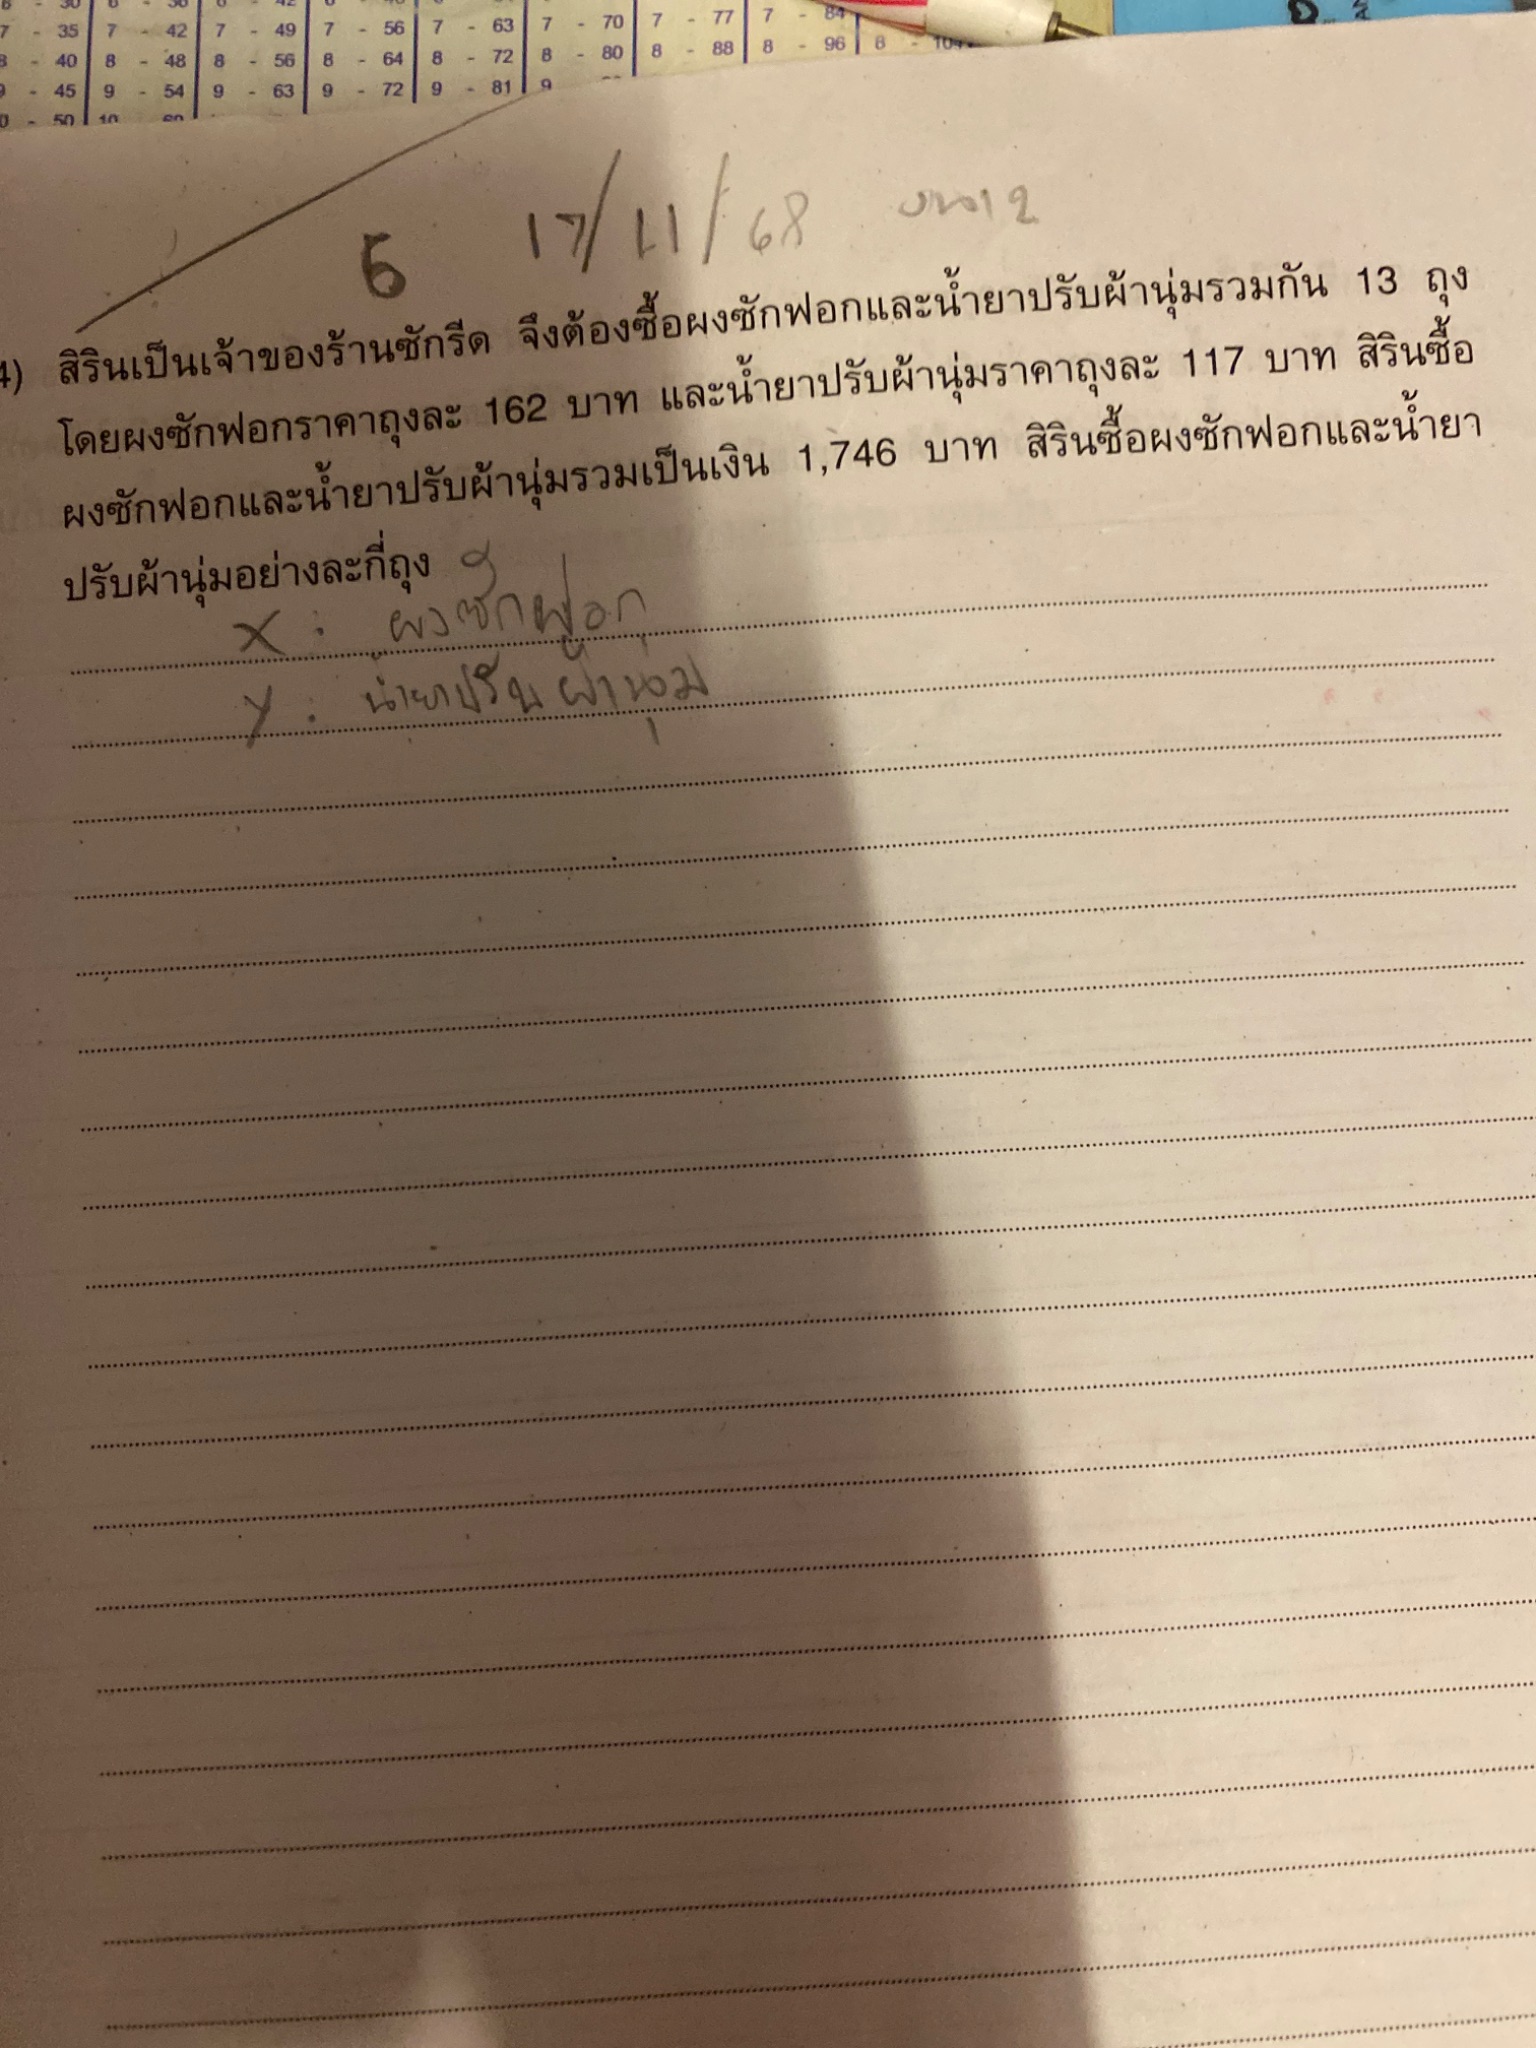 7 - 35 7 - 42 7 - 49 7 - 56 7 - 63 7 - 70 7 - 77 7 - 84
8 - 40 8 - 48 8 - 56 8 - 64 8 - 72 8 - 80 8 - 88 8 - 96 8 - 104
9 - 45 9 - 54 9 - 63 9 - 72 9 - 81 9
0 - 50 10 60
6 17/11/68
4) สิรินเป็นเจ้าของร้านซักรีด จึงต้องซื้อผงซักฟอกและน้ำยาปรับผ้านุ่มรวมกัน 13 ถุง
โดยผงซักฟอกราคาถุงละ 162 บาท และน้ำยาปรับผ้านุ่มราคาถุงละ 117 บาท สิรินซื้อ
ผงซักฟอกและน้ำยาปรับผ้านุ่มรวมเป็นเงิน 1,746 บาท สิรินซื้อผงซักฟอกและน้ำยา
ปรับผ้านุ่มอย่างละกี่ถุง
X : ผงซักฟอก
y : น้ำยาปรับผ้านุ่ม